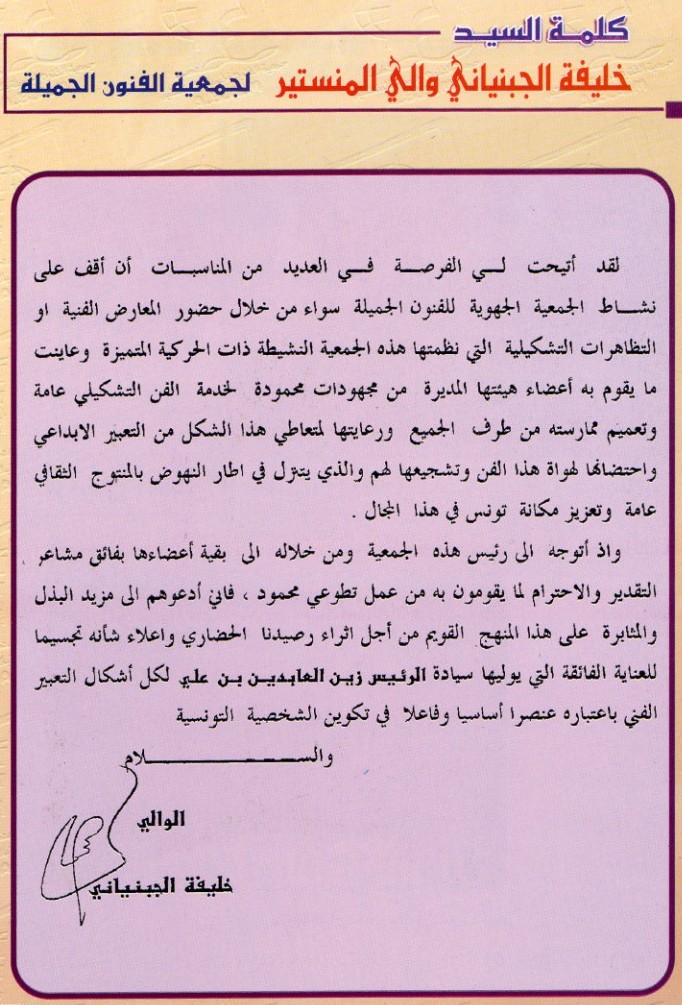 كلمة السيد
خليفة الجبنياني والي المنستير لجمعية الفنون الجميلة
لقد أتيحت لي الفرصة في العديد من المناسبات أن أقف على
نشاط الجمعية الجهوية للفنون الجميلة سواء من خلال حضور المعارض الفنية او
التظاهرات التشكيلية التي نظمتها هذه الجمعية النشيطة ذات الحركية المتميزة وعاينت
ما يقوم به أعضاء هيئتها المديرة من مجهودات محمودة لخدمة الفن التشكيلي عامة
وتعميم ممارسته من طرف الجميع ورعايتها لمتعاطي هذا الشكل من التعبير الابداعي
واحتضانها لهواة هذا الفن وتشجيعها لهم والذي يتنزل في اطار النهوض بالمنتوج الثقافي
عامة وتعزيز مكانة تونس في هذا المجال .
واذ أتوجه الى رئيس هذه الجمعية ومن خلاله الى بقية أعضاءها بفائق مشاعر
التقدير والاحترام لما يقومون به من عمل تطوعي محمود ، فاني أدعوهم الى مزيد البذل
والمثابرة على هذا المنهج القويم من أجل اثراء رصيدنا الحضاري واعلاء شأنه تجسيما
للعناية الفائقة التي يوليها سيادة الرئيس زين العابدين بن علي لكل أشكال التعبير
الفني باعتباره عنصرا أساسيا وفاعلا في تكوين الشخصية التونسية
والســـــــــــلام
الوالي
خليفة الجبنياني